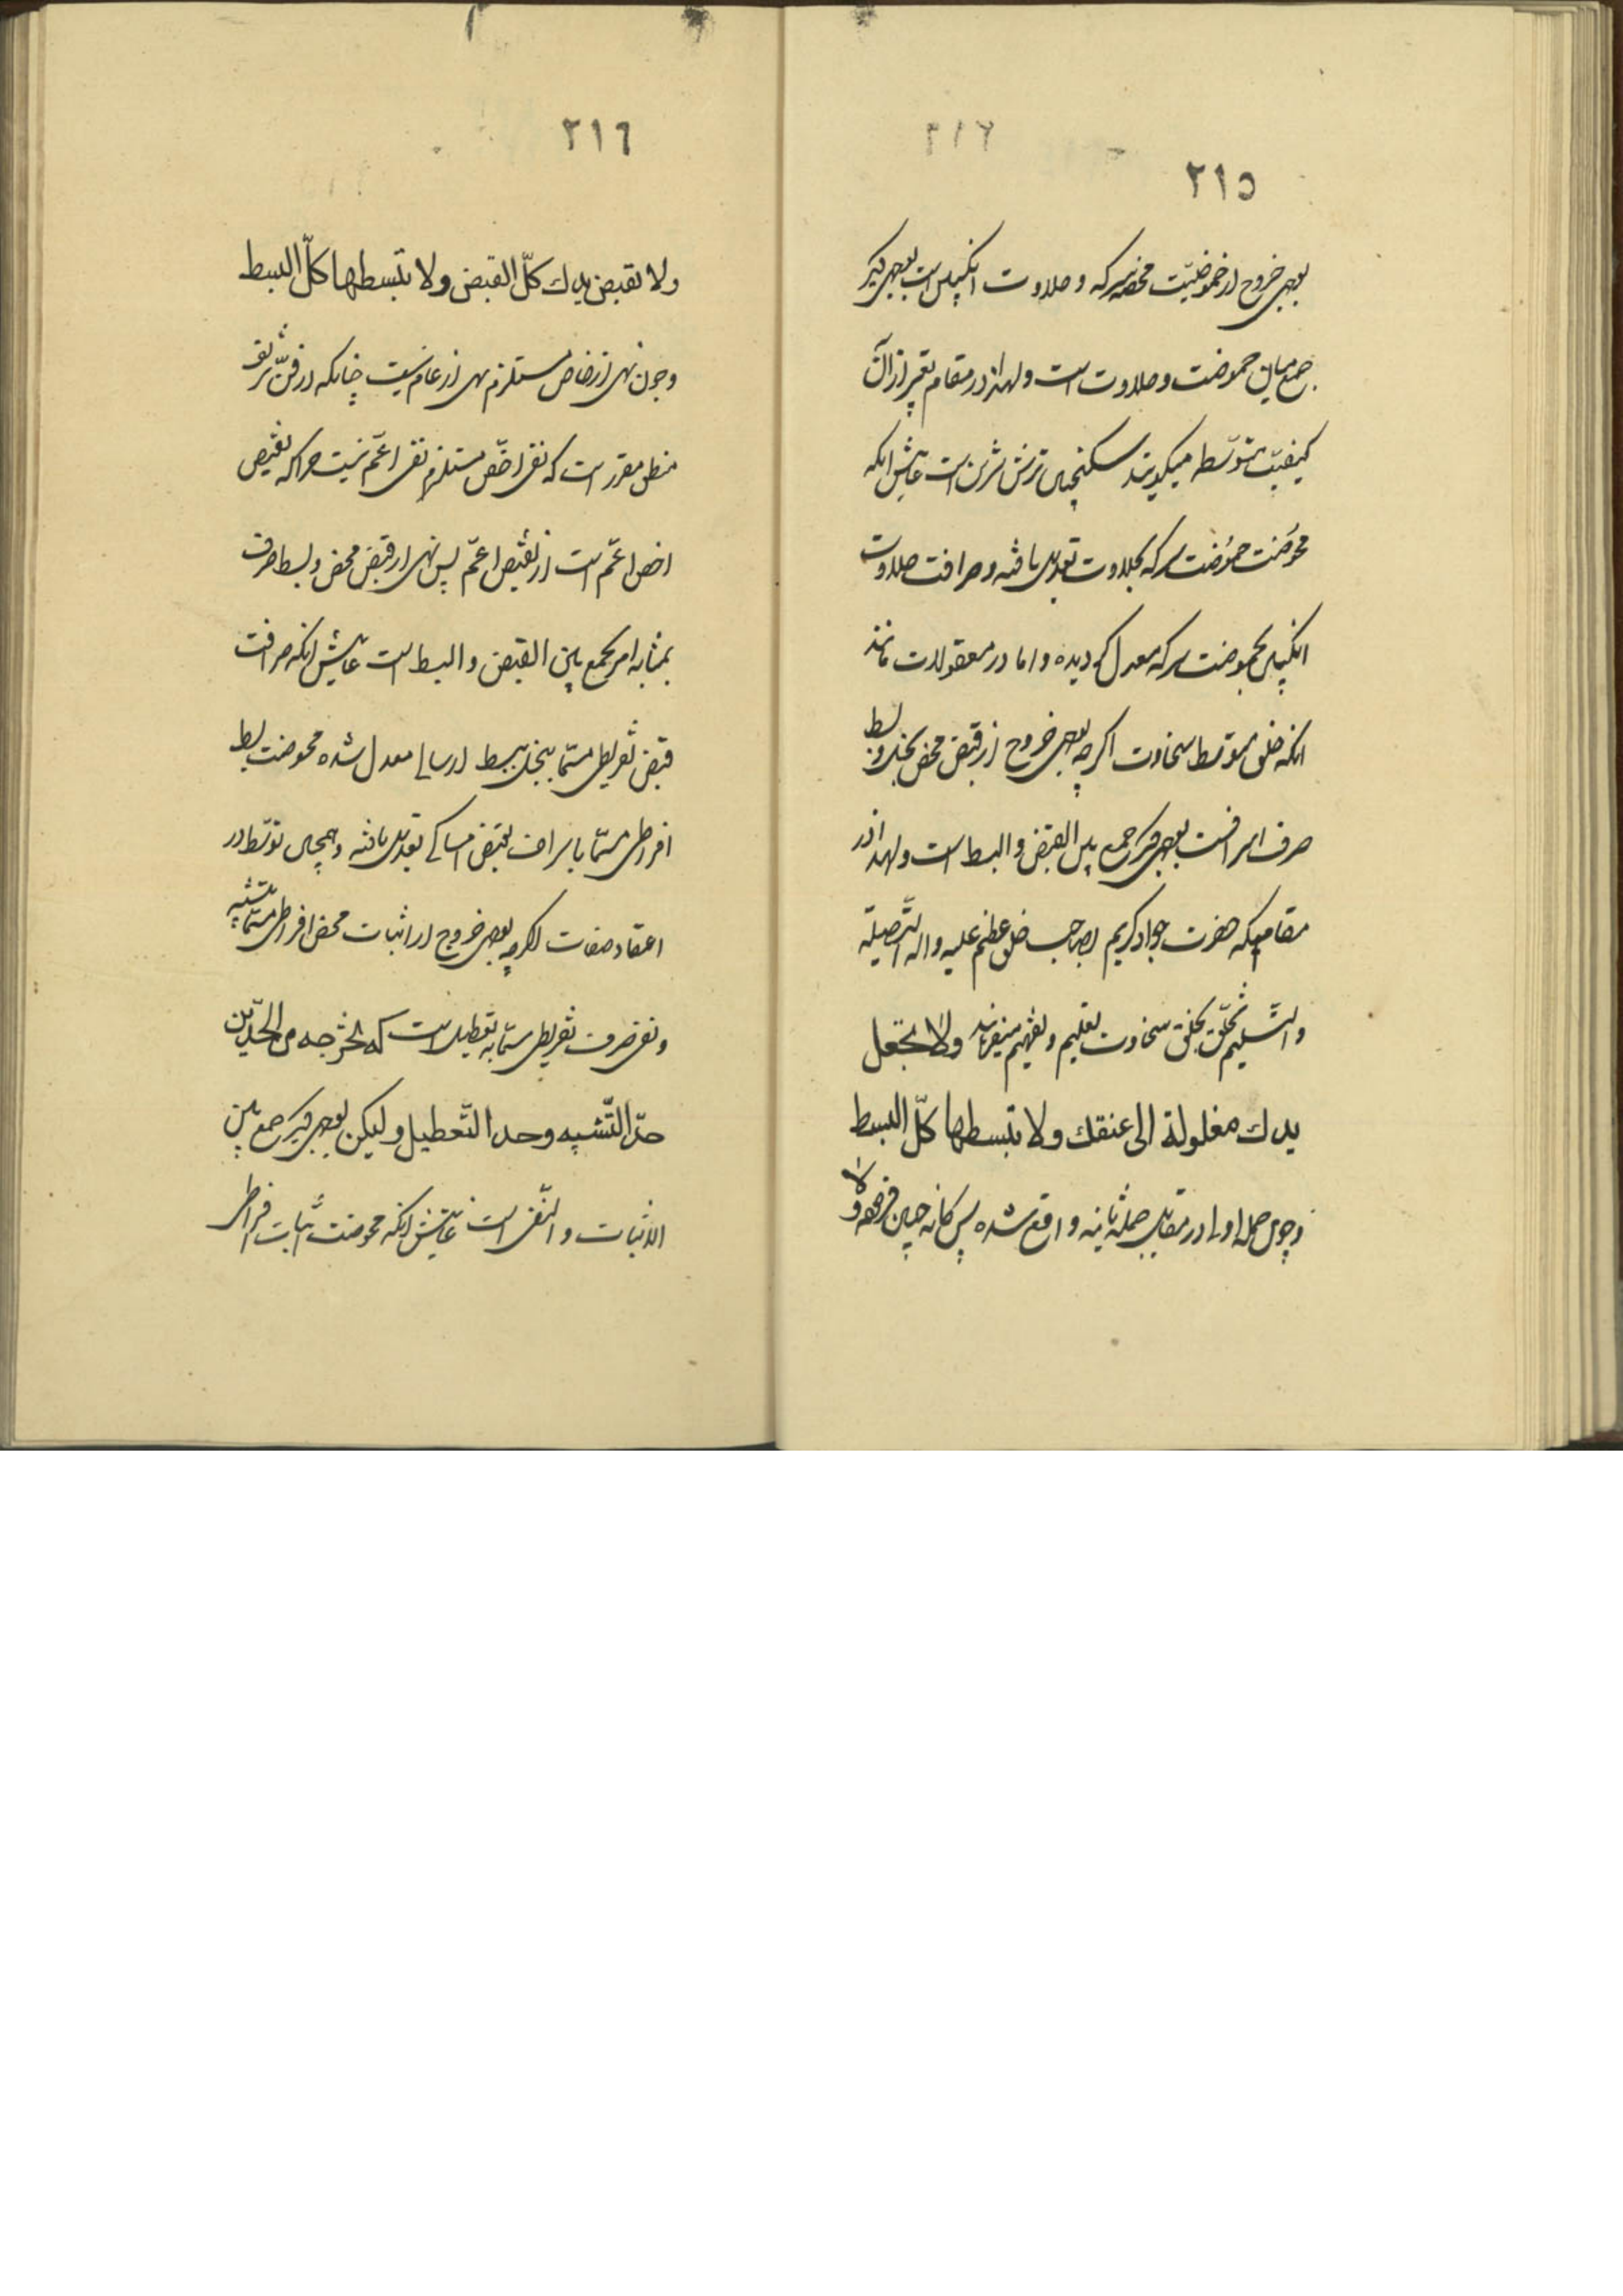 ٢١٥
بوجهی خروج از حموضیّت محضه سرکه و حلاوت انگبین است بوجهی دیگر
جمع میان حموضت و حلاوت است ولهذا در مقام تعبیر از آن
کیفیّت متوسّطه میگویند سکنجبین ترش شیرین است غایتش آنکه
محوضت حموضت سرکه بحلاوت تعدیل یافته و صرافت حلاوت
انگبین بحموضت سرکه معدل گردیده و اما در معقولات مانند
آنکه خلق متوسط سخاوت اگرچه بوجهی خروج از قبض محض بخل و بسط
صرف اسرافست بوجهی دیگر جمع بین القبض و البسط است ولهذا در
مقامیکه حضرت جواد کریم بصاحب خلق عظیم علیه و آله التّصلیة
و التّسلیم تخلّق بخلق سخاوت تعلیم و تفهیم میفرماید ولا تجعل
يدك مغلولة الى عنقك ولا تبسطها كلّ البسط
و چون جمله اولی در مقابل جمله ثانیه واقع شده پس کانه چنین فرموده لا
٢١٦
ولا تقبض يدك كلّ القبض ولا تبسطها كلّ البسط
و چون نهی از خاص مستلزم نهی از عام نیست چنانکه در فنّ شریف
منطق مقرر است که نفی اخصّ مستلزم نفی اعمّ نیست چرا که نقیض
اخص اعمّ است از نقیض اعمّ پس نهی از قبض محض و بسط صرف
بمثابه امر بجمع بین القبض و البسط است غایتش آنکه صرافت
قبض تفریطی مسمّا ببخل ببسط ارسالی معدل شده محوضت بسط
افراطی مسمّا باسراف بقبض امساکی تعدیل یافته و همچنین توسّط در
اعتقاد صفات اگرچه بوجهی خروج از اثبات محض افراطی مسمّا بتشبیه
و نفی صرف تفریطی مسمّا به تعطیل است که تخرجه من الحدّین
حدّ التّشبيه وحد التّعطيل ولیکن بوجهی دیگر جمع بین
الاثبات و النّفی است غایتش آنکه محوضت اثبات افراطی